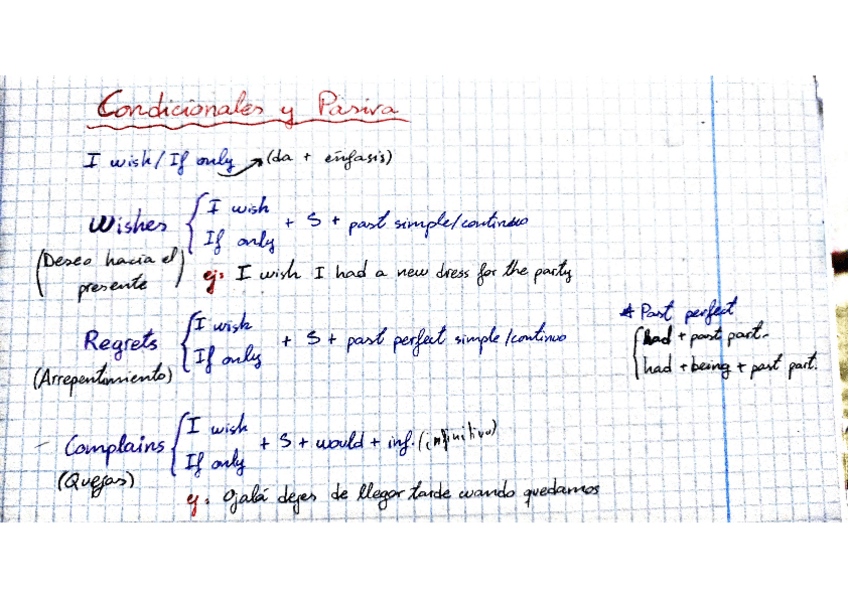 Condicionales y Pasiva
I wish/If only → (da + énfasis)
Wishes { I wish
If only + S + past simple/continuo
(Deseo hacia el presente)
ej: I wish I had a new dress for the party
Regrets { I wish
If only + S + past perfect simple/continuo
(Arrepentimiento)
* Past perfect
{ had + past part.
had + being + past part.
- Complains { I wish
If only + S + would + inf. (infinitivo)
(Quejas)
ej: Ojalá dejes de llegar tarde cuando quedamos